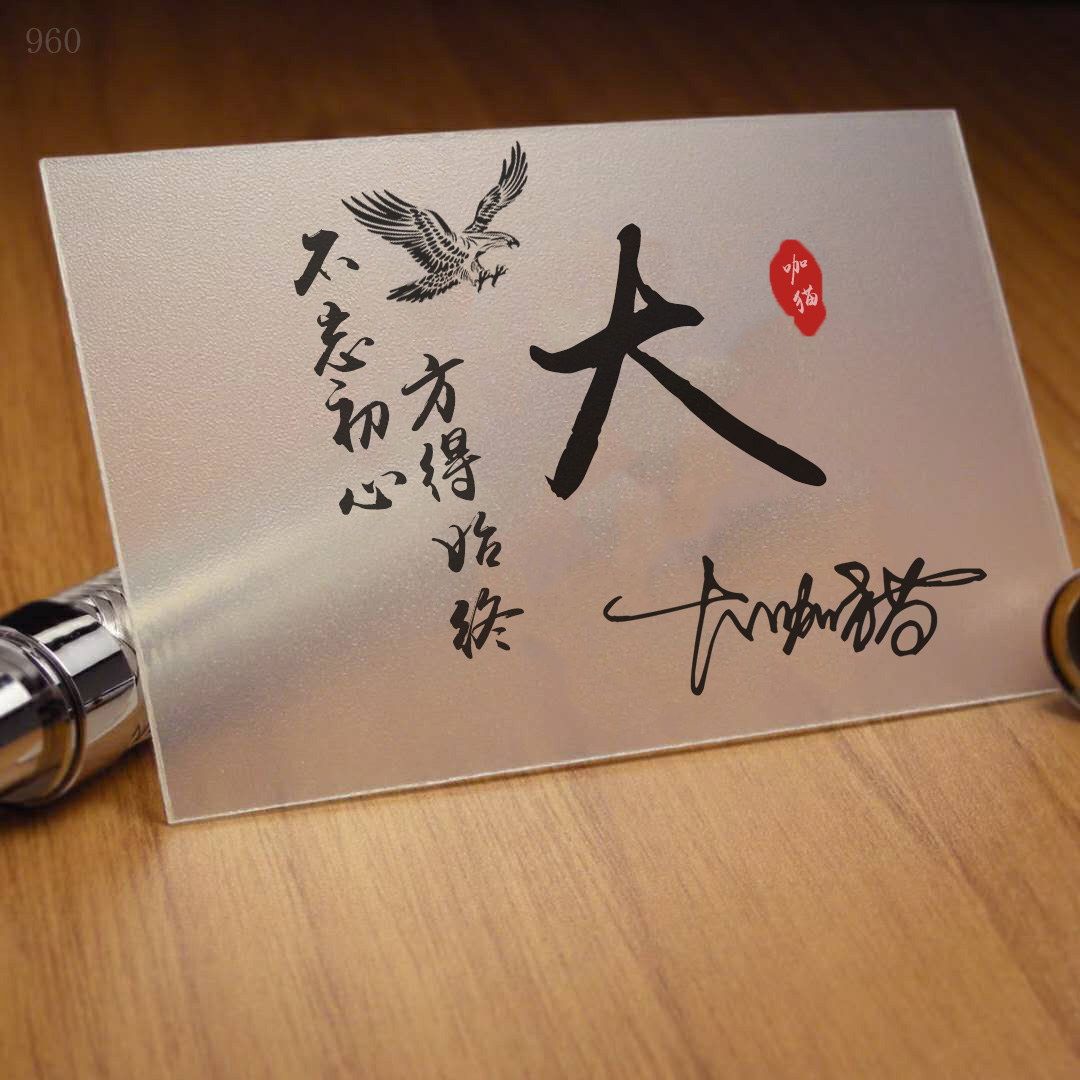 960
不忘初心
方得始终
大
咖猫
大咖猫